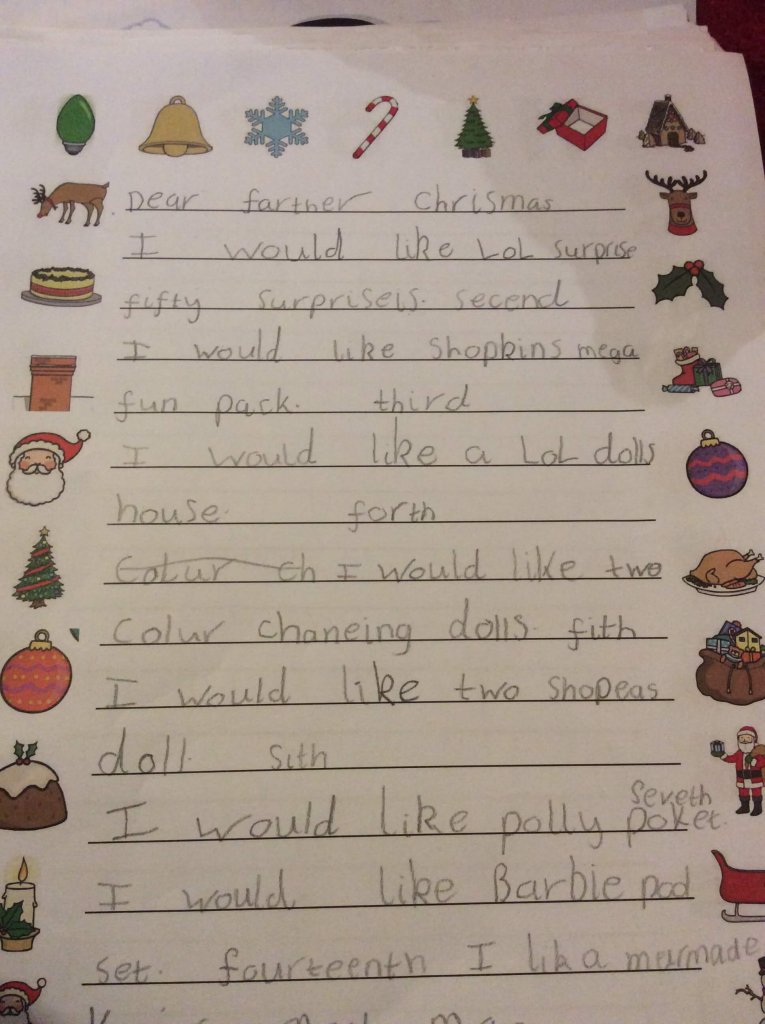 Dear farther Chrismas
I would like LOL surprise
fifty surpriseis. secend
I would like Shopkins mega
fun pack. third
I would like a LOL dolls
house. forth
Colur ch I would like two
Colur chaneing dolls. fith
I would like two Shopeas
doll. sith
I would like polly poket. seveth
I would like Barbie pod
set. fourteenth I lik a mermade